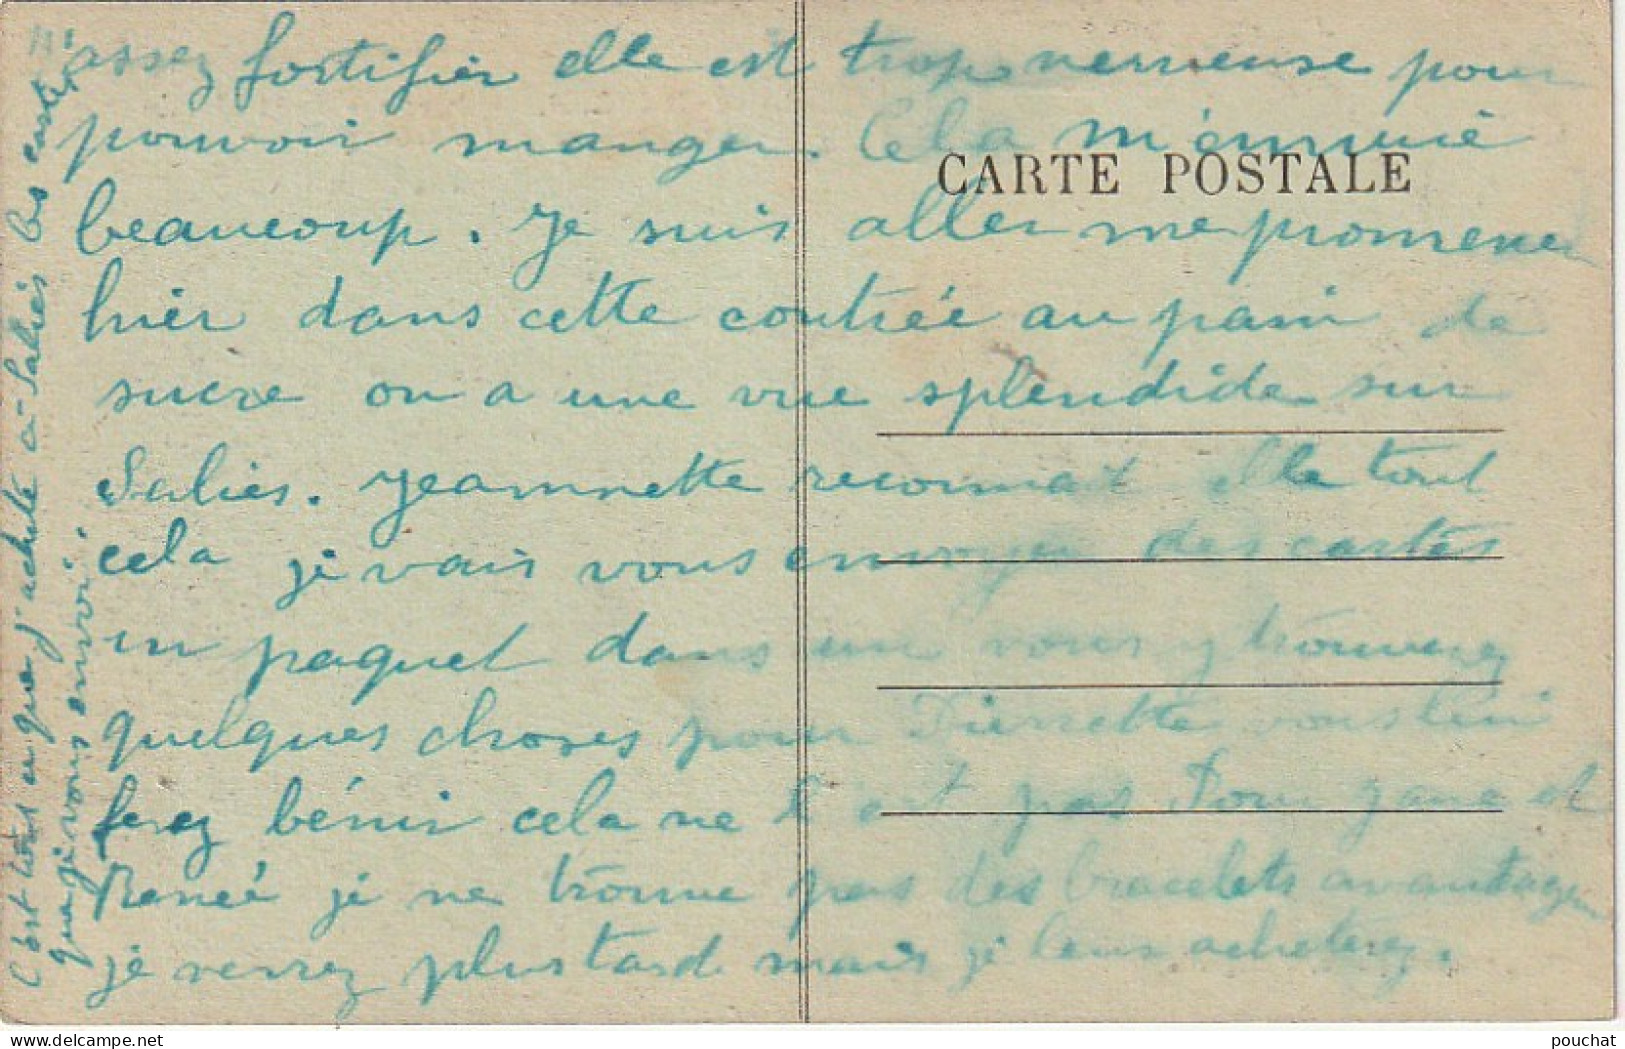 assez fortifier elle est trop nerveuse pour
pouvoir manger. Cela m'ennuie
CARTE POSTALE
beaucoup. Je suis aller me promener
hier dans cette contrée au pain de
sucre on a une vue splendide sur
Salies. Jeannette reconnait elle tout
cela je vais vous envoyer des cartes
un paquet dans un vous y trouverez
quelques choses pour Pierrette vous lui
ferez bénir cela ne l'est pas Pour Jane et
Renée je ne trouve pas des bracelets avantageux
je verrez plus tard mais je leurs acheterez.
C'est tous ce que j'achete a Salies les cartes
que je vous envoi.
delcampe.net
pouchat